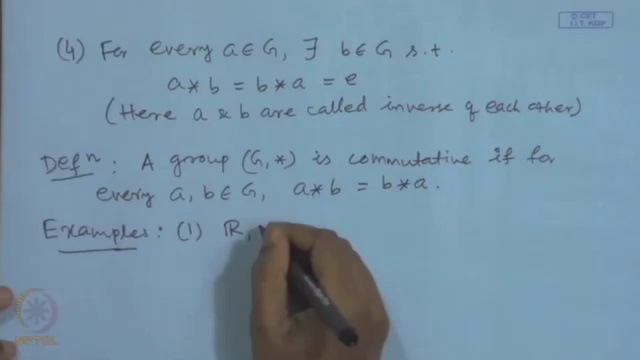 © CET
I.I.T. KGP
(4) For every a ∈ G, ∃ b ∈ G s.t.
a * b = b * a = e
(Here a & b are called inverse of each other)
Defⁿ : A group (G, *) is commutative if for
every a, b ∈ G, a * b = b * a.
Examples : (1) ℝ,
NPTEL